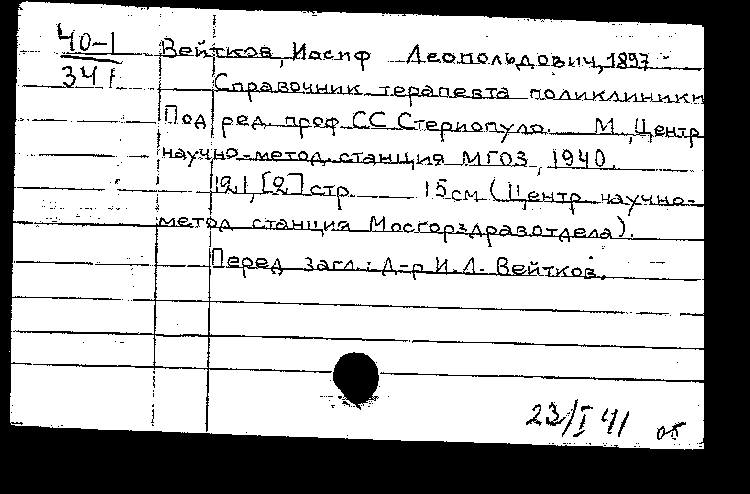 40-1
341
Вейтков, Иосиф Леопольдович, 1897 -
Справочник терапевта поликлиники
Под ред. проф. С С Стериопуло. М, Центр
научно-метод. станция МГОЗ, 1940.
121, [2] стр. 15 см (Центр научно-
метод станция Мосгорздравотдела).
Перед загл.: Д-р И.Л. Вейтков.
23/I 41 об